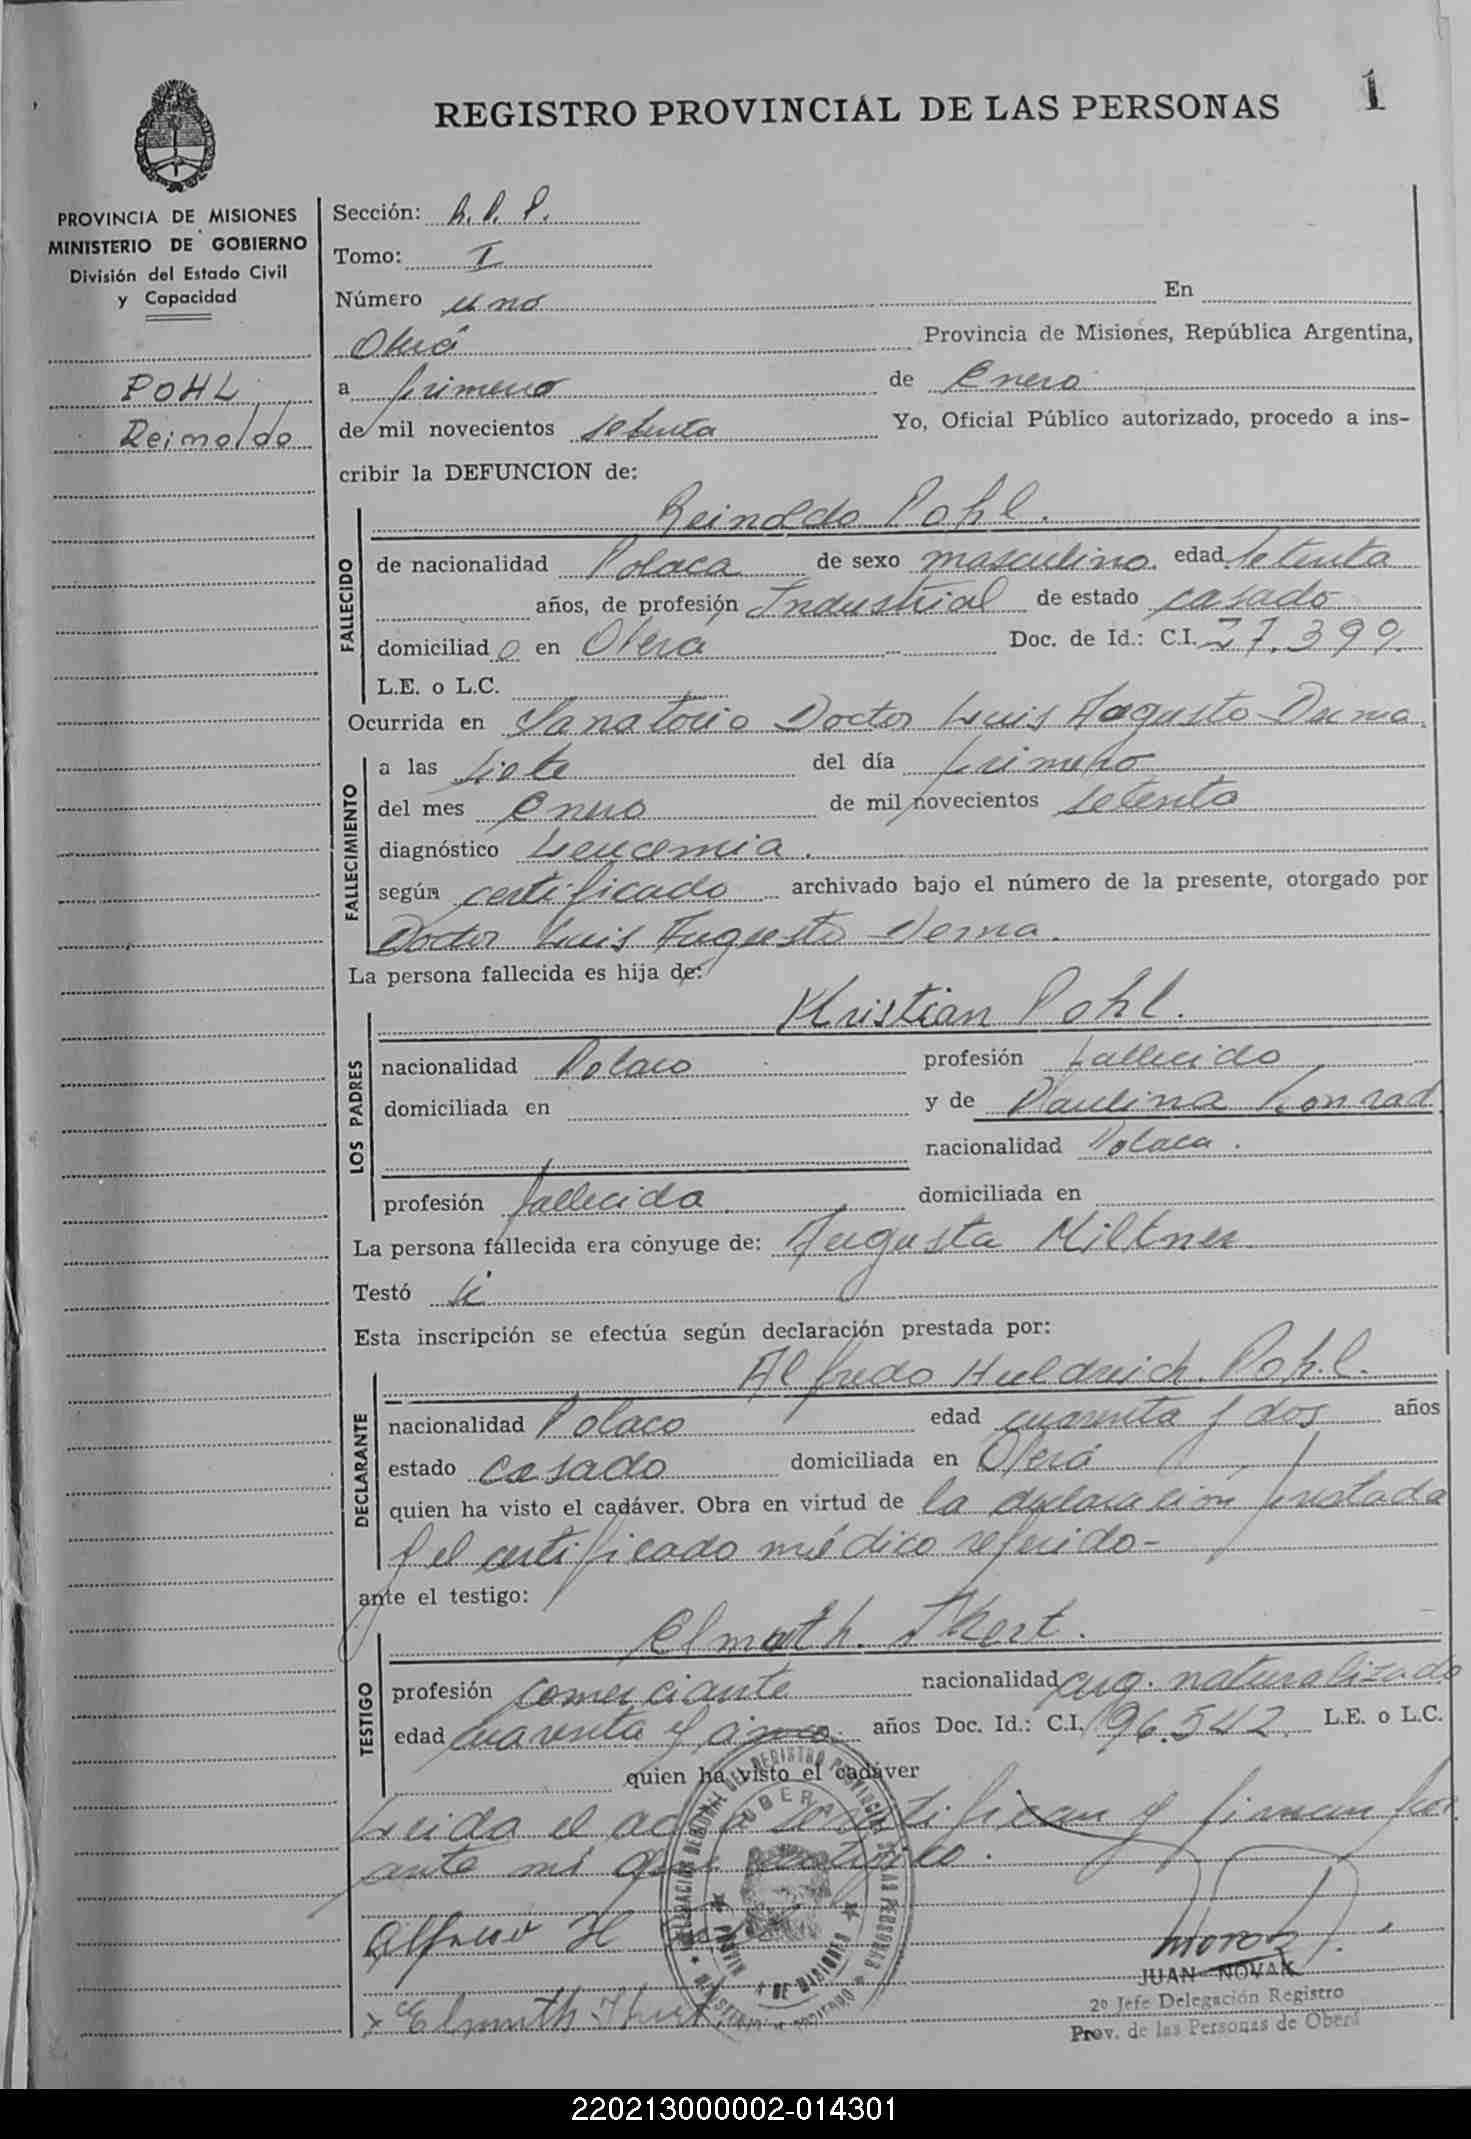 REGISTRO PROVINCIAL DE LAS PERSONAS
1
PROVINCIA DE MISIONES
MINISTERIO DE GOBIERNO
División del Estado Civil
y Capacidad
POHL
Reinoldo
Sección: R. P. P.
Tomo: I
Número uno En
Oberá Provincia de Misiones, República Argentina,
a primero de Enero
de mil novecientos setenta Yo, Oficial Público autorizado, procedo a ins-
cribir la DEFUNCION de:
Reinoldo Pohl.
FALLECIDO
de nacionalidad Polaca de sexo masculino. edad setenta
años, de profesión Industrial de estado casado
domiciliado en Oberá Doc. de Id.: C.I. 27.399.
L.E. o L.C.
Ocurrida en Sanatorio Doctor Luis Augusto Derna
FALLECIMIENTO
a las siete del día primero
del mes Enero de mil novecientos setenta
diagnóstico Leucemia.
según certificado archivado bajo el número de la presente, otorgado por
Doctor Luis Augusto Derna.
La persona fallecida es hija de:
Kristian Pohl.
LOS PADRES
nacionalidad Polaco profesión fallecido
domiciliada en y de Paulina Konrad
nacionalidad Polaca.
profesión fallecida domiciliada en
La persona fallecida era cónyuge de: Augusta Miltner
Testó si
Esta inscripción se efectúa según declaración prestada por:
Alfredo Huldreich Pohl.
DECLARANTE
nacionalidad Polaco edad cuarenta y dos años
estado casado domiciliada en Oberá
quien ha visto el cadáver. Obra en virtud de la declaración prestada
y el certificado médico referido-
ante el testigo:
Elmuth
TESTIGO
profesión comerciante nacionalidad arg. naturalizado
edad cuarenta y cinco. años Doc. Id.: C.I. 196.542 L.E. o L.C.
quien ha visto el cadáver
Leida el acta la ratifican y firman por
ante mi que certifico.
Alfredo H
Elmuth
DELEGACION REGIONAL DEL REGISTRO PROVINCIAL DE LAS PERSONAS
OBERA
DE MISIONES
JUAN NOVAK
2º Jefe Delegación Registro
Prov. de las Personas de Oberá
220213000002-014301